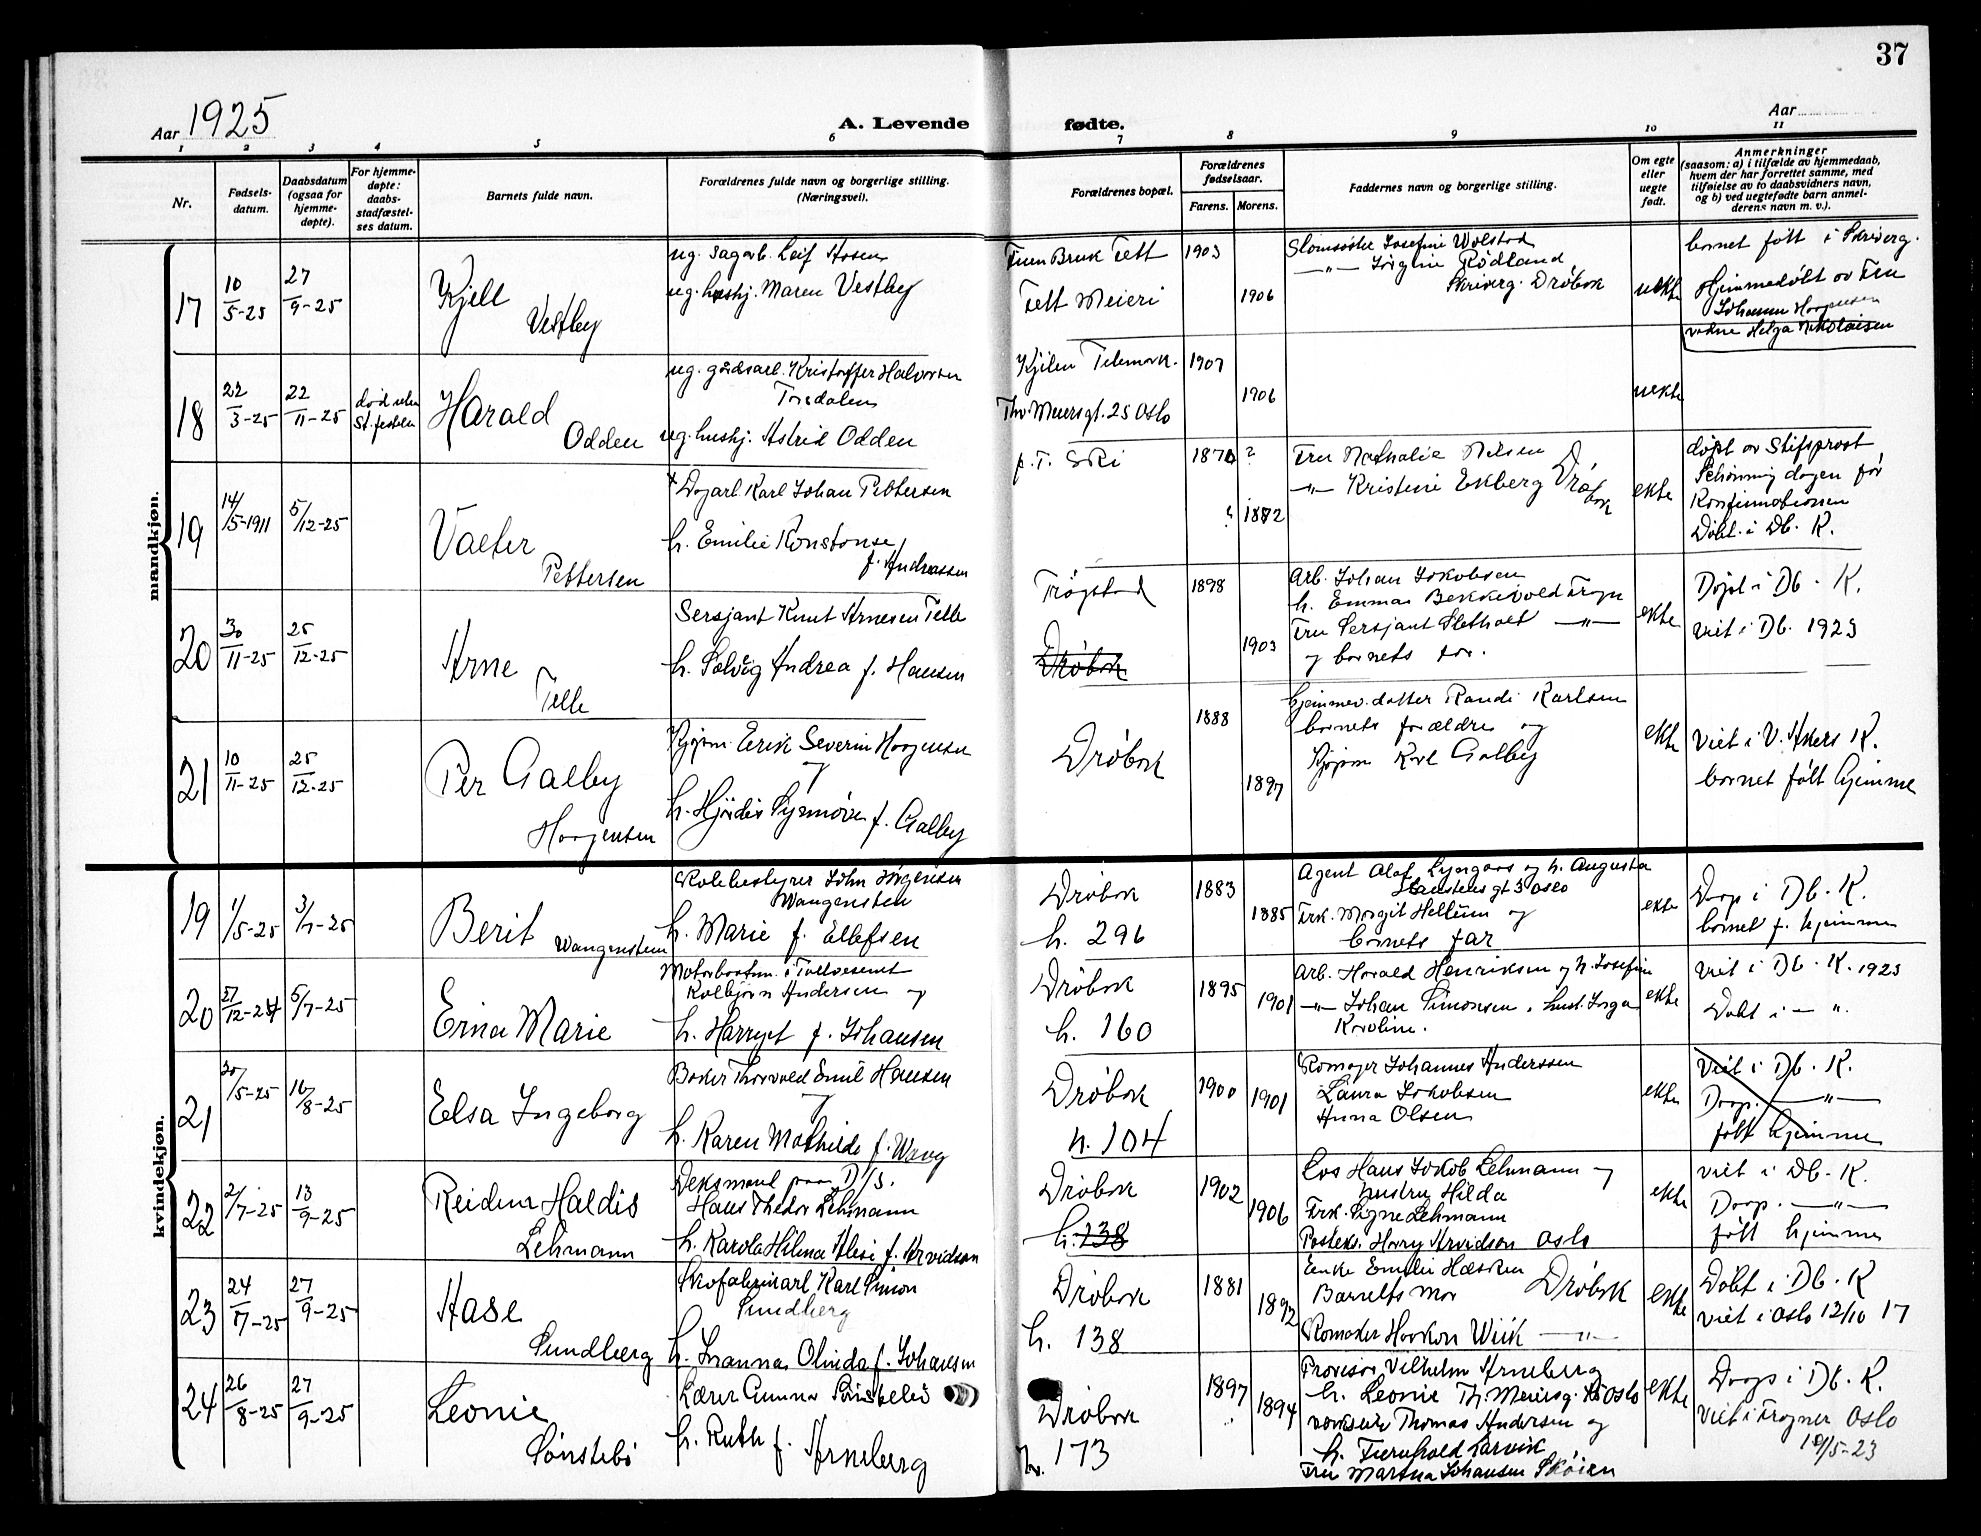 37
Aar 1925
A. Levende fødte.
Aar
1 2 3 4 5 6 7 8 9 10 11
Nr.
Fødsels-
datum.
Daabsdatum
(ogsaa for
hjemme-
døpte).
For hjemme-
døpte:
daabs-
stadfæstel-
ses datum.
Barnets fulde navn.
Forældrenes fulde navn og borgerlige stilling.
(Næringsvei).
Forældrenes bopæl.
Forældrenes
fødselsaar.
Farens. Morens.
Faddernes navn og borgerlige stilling.
Om egte
eller
uegte
født.
Anmerkninger
(saasom: a) i tilfælde av hjemmedaab,
hvem der har forrettet samme, med
tilføielse av to daabsvidners navn,
og b) ved uegtefødte barn anmel-
derens navn m. v.).
mandkjøn.
17
10/5-25
27/9-25
Kjell
Vestby
ug. sagarb. Leif
ug. hushj. Maren Vestby
Bruk Tett
Tett Meieri
1903
1906
Josefine Wolstad
Rödland
Drøbak
uekte
barnet følt i
Hjemmedølt av Fru
Johanne
Helga Nikolaisen
18
22/3-25
22/11-25
død uten
st.festelse
Harald
Odden
ug. gårdsarb. Kristoffer Halvorsen
Torsdalen
ug. hushj. Astrid Odden
Telemark.
Thv Meiersgt. 25 Oslo
1907
1906
uekte
19
14/5-1911
5/12-25
Valter
Pettersen
Dagarb Karl Johan Pettersen
h. Emilie Konstanse
f. Andreassen
p. T. Ski
1874 ?
1872
Fru Nathalie Nelsen
-"- Kristine Ekberg Drøbak
ekte
døpt av Stifsprost
Schönning dagen før
Konfirmationen
Døbt i Db. K.
20
30/11-25
25/12-25
Arne
Telle
Sersjant Knut Arnesen Telle
h. Solveig Andrea f. Hansen
Trøgstad
Drøbak
1898
1903
Arb. Johan Jakobsen
h. Emma Bekkevold Frogn
Fru Sersjant Sletholt -"-
og barnets far.
ekte
Døpt i Db. K.
viet i Db. 1923
21
10/11-25
25/12-25
Per Galby
Haagensen
Kjøpm. Eerik Severin Haagensen
og
h. Hjördis Synnöve f. Galby
Drøbak
1888
1897
hjemmev. datter Randi Karlsen
barnets forældre og
Kjøpm Karl Galby
ekte
Viet i V. Akers K.
barnet følt hjemme
kvindekjøn.
19
1/5-25
3/7-25
Berit
Wangensteen
Skolebestyrer John Jörgensen
Wangensteen
h. Marie f. Ellefsen
Drøbak
h. 296
1883
1885
Agent Olaf Lyngaas og h. Augusta
gt 3 Oslo
Frk. Margit Hellum og
barnets far
ekte
Daap i Db. K.
barnet f. hjemme
20
27/12-24
5/7-25
Erna Marie
Motorbaatm. i Tollvesenet
Kolbjørn Andersen og
h. Harryet f. Johansen
Drøbak
h. 160
1895
1901
Arb. Harald Henriksen og h. Josefine
-"- Johan Simonsen, hust. Inga
Karoline.
ekte
viet i Db. K. 1923
Døbt i - ".
21
30/5-25
16/8-25
Elsa Ingeborg
Baker Thorvald Emil Hansen
og
h. Karen Mathilde f. Wang
Drøbak
h. 104
1900
1901
Johannes Anderssen
Laura Jakobsen
Anna Olsen
ekte
Viet i Db. K.
Daap. -"-
følt hjemme
22
2/7-25
13/9-25
Reidun Haldis
Lehmann
Deksmand paa D/S.
Hans Thedor Lehmann
h. Karola Hilma Alisi f. Arvidson
Drøbak
h. 138
1902
1906
Los Hans Jakob Lehmann og
hustru Hilda
Frk. Signe Lehmann
Harry Arvidson Oslo
ekte
viet i Db. K.
Daap. -"-
følt hjemme
23
24/7-25
27/9-25
Aase
Sundberg
Skofabrikarb Karl Simon
Sundberg
h. Olinda f. Johansen
Drøbak
h. 138
1881
1892
Enke Emilie Hæsken
Barnets mor Drøbak
Haakon Wiik -"-
ekte
Døbt i Db. K
viet i Oslo 12/10 17
24
26/8-25
27/9-25
Leonie
Sønstebö
Lærer Gunnar Sönstebö
h. Ruth f. Arneberg
Drøbak
h. 173
1897
1894
Provisor Vilhelm Arneberg
h. Leonie Th. Meiersg. Oslo
Thomas Andersen og
h. Larvik
Fru Martha Johansen Skøien
ekte
Daap i Db. K.
Viet i Frogner Oslo
19/5-23